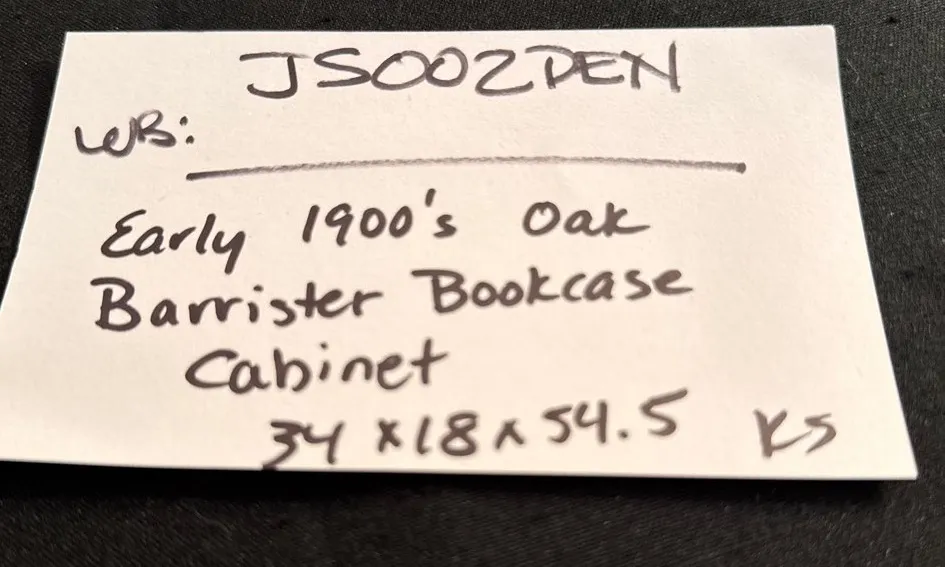 JS002DEN
WB:
Early 1900's Oak
Barrister Bookcase
Cabinet
34 x 18 x 54.5 KS